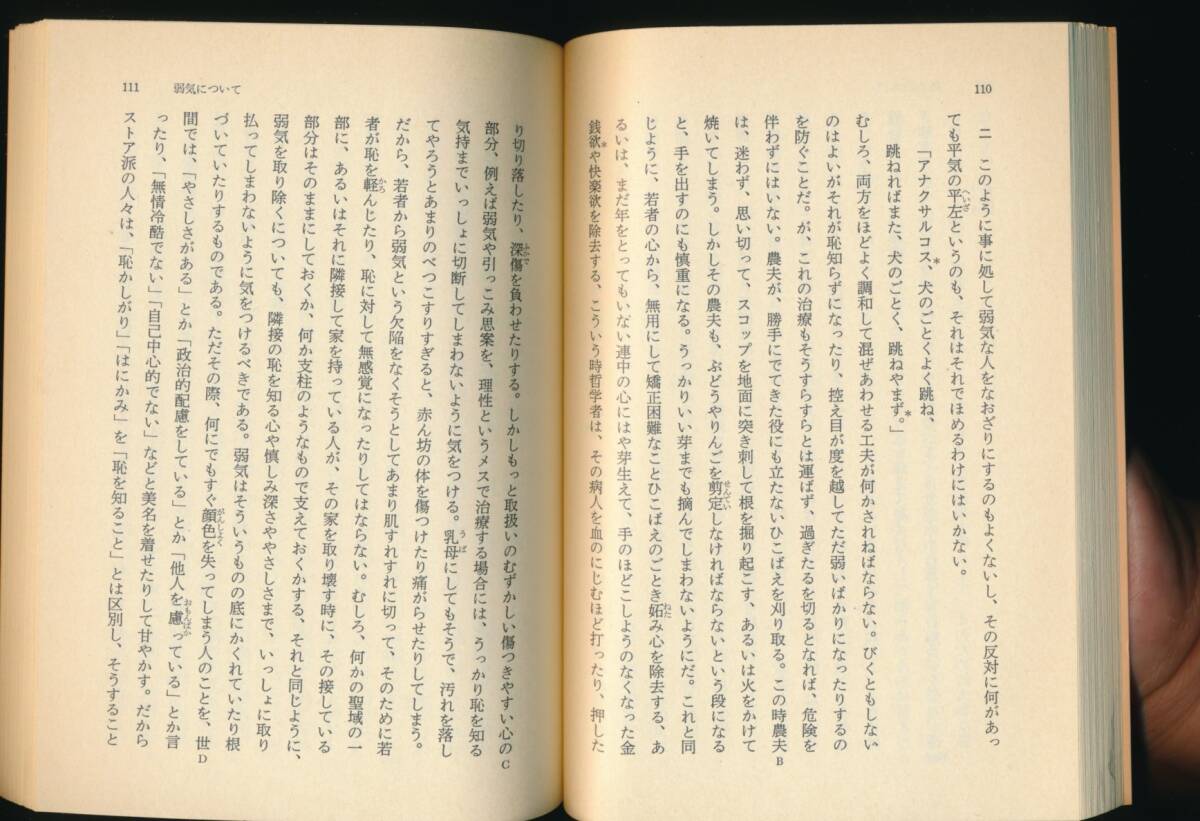 110
二　このように事に処して弱気な人をなおざりにするのもよくないし、その反対に何があっ
ても平気の平左というのも、それはそれでほめるわけにはいかない。
へいざ
「アナクサルコス、犬のごとくよく跳ね、
*
跳ねればまた、犬のごとく、跳ねやまず。」
*
むしろ、両方をほどよく調和して混ぜあわせる工夫が何かされねばならない。びくともしない
のはよいがそれが恥知らずになったり、控え目が度を越してただ弱いばかりになったりするの
を防ぐことだ。が、これの治療もそうすらすらとは運ばず、過ぎたるを切るとなれば、危険を
伴わずにはいない。農夫が、勝手にでてきた役にも立たないひこばえを刈り取る。この時農夫
B
は、迷わず、思い切って、スコップを地面に突き刺して根を掘り起こす、あるいは火をかけて
焼いてしまう。しかしその農夫も、ぶどうやりんごを剪定しなければならないという段になる
せんてい
と、手を出すのにも慎重になる。うっかりいい芽までも摘んでしまわないようにだ。これと同
じように、若者の心から、無用にして矯正困難なことひこばえのごとき妬み心を除去する、あ
ねた
るいは、まだ年をとってもいない連中の心にはや芽生えて、手のほどこしようのなくなった金
銭欲や快楽欲を除去する、こういう時哲学者は、その病人を血のにじむほど打ったり、押した
*
111
弱気について
り切り落したり、深傷を負わせたりする。しかしもっと取扱いのむずかしい傷つきやすい心の
ふかで
C
部分、例えば弱気や引っこみ思案を、理性というメスで治療する場合には、うっかり恥を知る
気持までいっしょに切断してしまわないように気をつける。乳母にしてもそうで、汚れを落し
うば
てやろうとあまりのべつこすりすぎると、赤ん坊の体を傷つけたり痛がらせたりしてしまう。
だから、若者から弱気という欠陥をなくそうとしてあまり肌すれすれに切って、そのために若
者が恥を軽んじたり、恥に対して無感覚になったりしてはならない。むしろ、何かの聖域の一
かろ
部に、あるいはそれに隣接して家を持っている人が、その家を取り壊す時に、その接している
部分はそのままにしておくか、何か支柱のようなもので支えておくかする、それと同じように、
弱気を取り除くについても、隣接の恥を知る心や慎しみ深さややさしさまで、いっしょに取り
払ってしまわないように気をつけるべきである。弱気はそういうものの底にかくれていたり根
づいていたりするものである。ただその際、何にでもすぐ顔色を失ってしまう人のことを、世
がんしょく
D
間では、「やさしさがある」とか「政治的配慮をしている」とか「他人を慮っている」とか言
おもんぱか
ったり、「無情冷酷でない」「自己中心的でない」などと美名を着せたりして甘やかす。だから
ストア派の人々は、「恥かしがり」「はにかみ」を「恥を知ること」とは区別し、そうすること